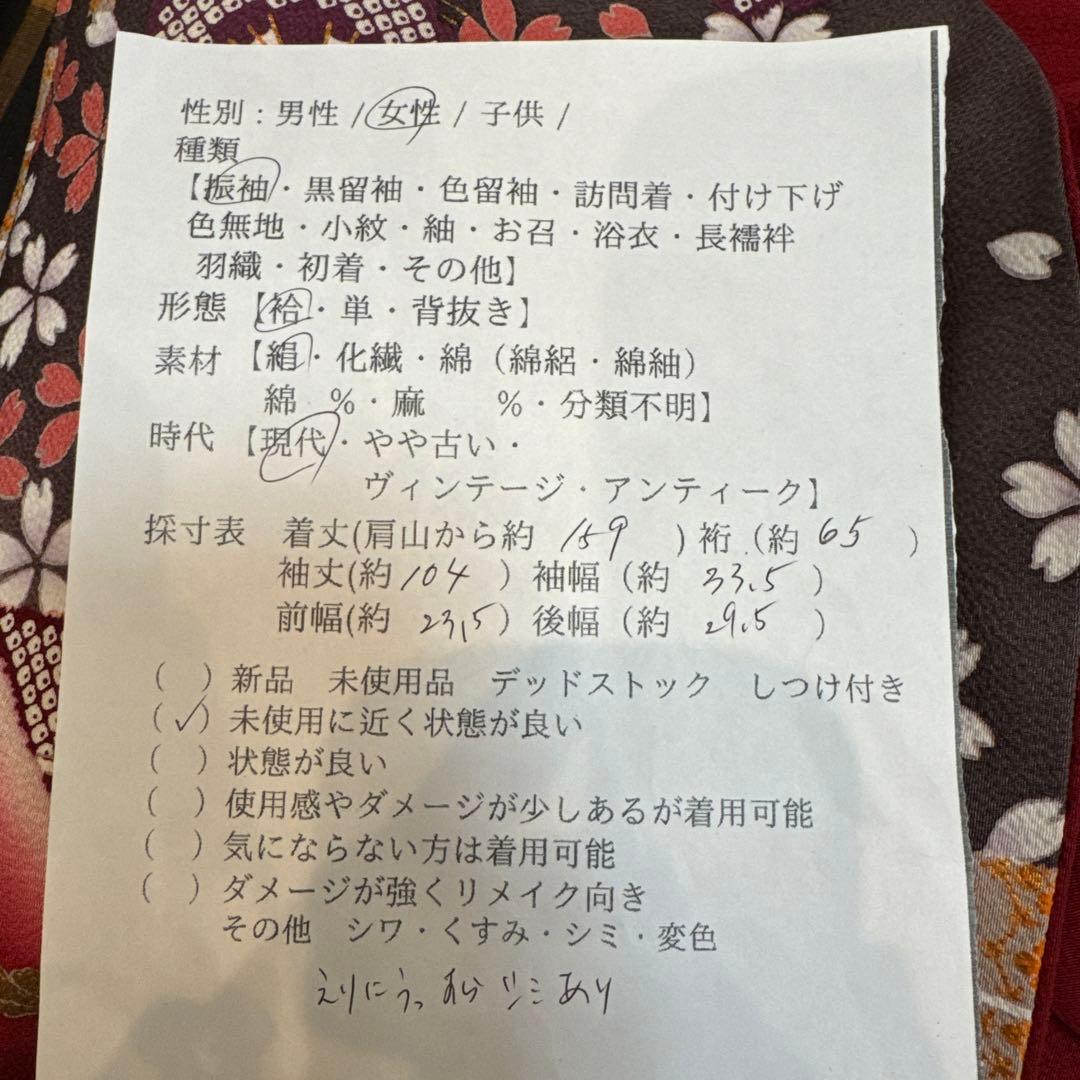 性別：男性 / 女性 / 子供 /
種類
【振袖・黒留袖・色留袖・訪問着・付け下げ
色無地・小紋・紬・お召・浴衣・長襦袢
羽織・初着・その他】
形態【袷・単・背抜き】
素材【絹・化繊・綿（綿絽・綿紬）
綿 %・麻 %・分類不明】
時代【現代・やや古い・
ヴィンテージ・アンティーク】
採寸表 着丈(肩山から約 159 ) 裄（約 65 ）
袖丈(約 104 ）袖幅（約 33.5 ）
前幅(約 23,5 ）後幅（約 29.5 ）
（ ）新品 未使用品 デッドストック しつけ付き
（✓）未使用に近く状態が良い
（ ）状態が良い
（ ）使用感やダメージが少しあるが着用可能
（ ）気にならない方は着用可能
（ ）ダメージが強くリメイク向き
その他 シワ・くすみ・シミ・変色
えりにうっすらシミあり